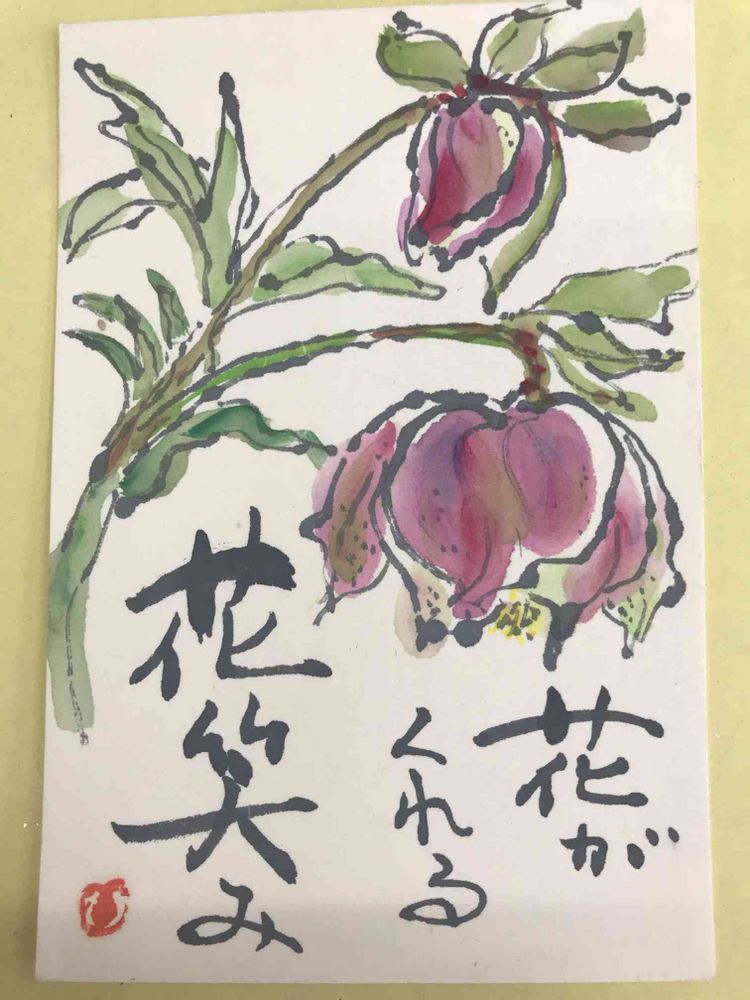 花が
くれる
花笑み
ひ